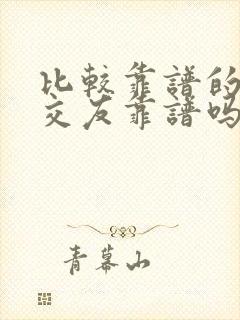 比較靠譜的
交友靠譜嗎
青幕山